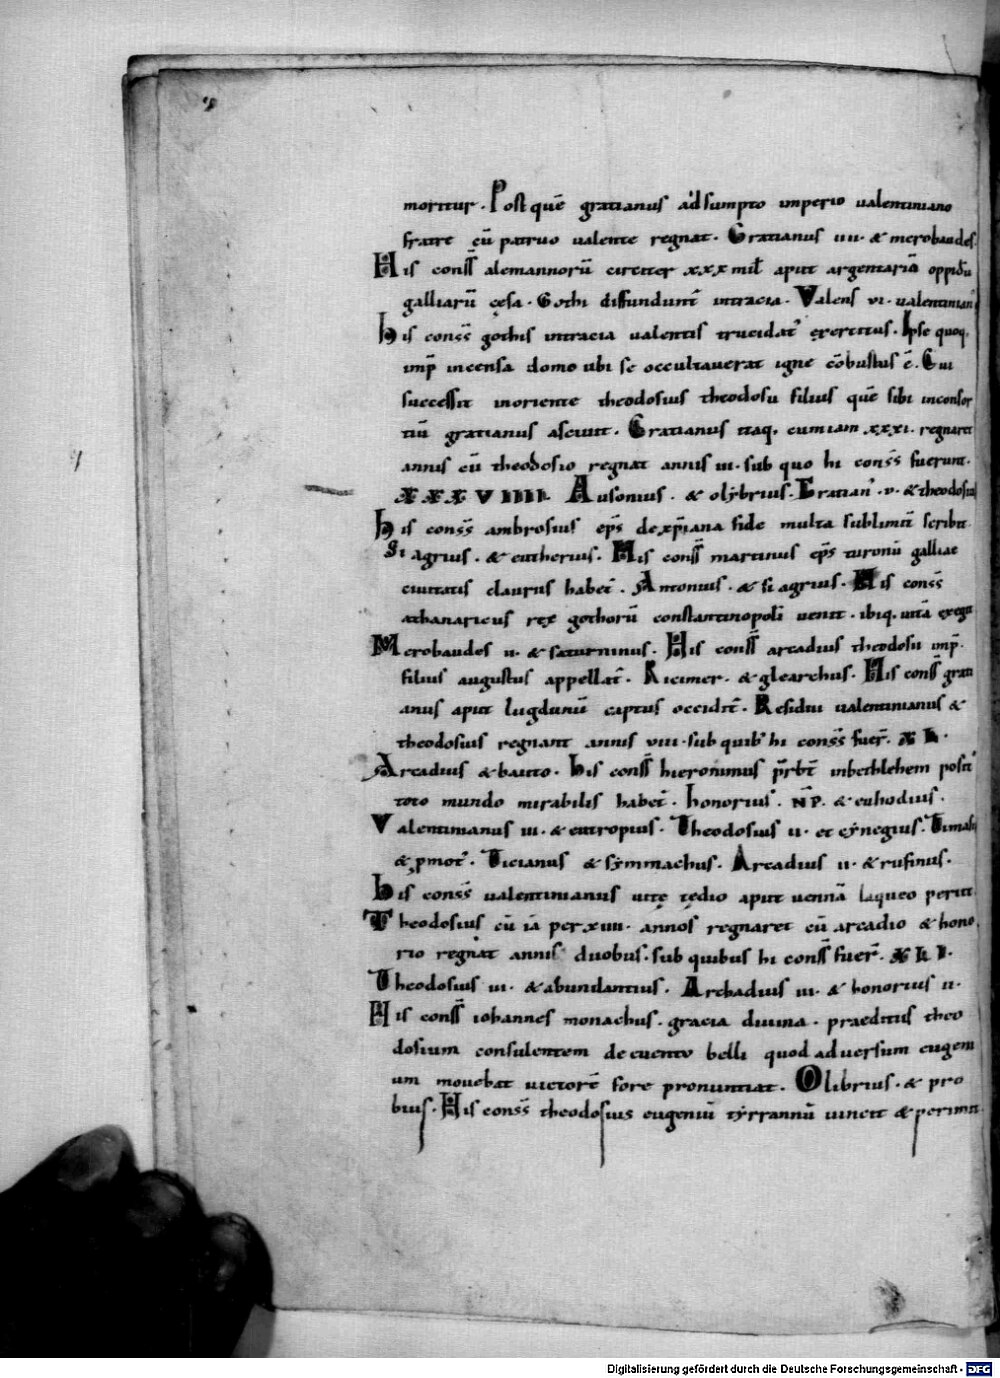 moritur. Post quē gratianus adsumpto imperio ualentiniano
fratre cū patruo ualente regnat. Gratianus IIII. & merobaudes.
His consſ alemannorū circiter xxx mil̄ aput argentariā oppidū
galliarū cęsa. Gothi diffundunt̄ intracia. Valens vi. ualentinian'
His consſ gothis intracia ualentis trucidat' exercitus. Ipse quoq.
imp̄ incensa domo ubi se occultauerat igne cōbustus ē. Cui
successit inoriente theodosius theodosii filius quē sibi inconsor
tiū gratianus asciuit. Gratianus itaq. cumiam xxxi. regnaret
annis cū theodosio regnat annis iii. sub quo hi consſ fuerunt.
XXXVIIII. Ausonius. & olybrius. Gratian'. v. & theodosius
His consſ ambrosius ep̄s dexp̄iana fide multa sublimit̄ scribit
Si agrius. & eutherius. His consſ martinus ep̄s turonū galliae
ciuitatis clarus habet̄. Antonius. & si agrius. His consſ
athanaricus rex gothorū constantinopoli uenit. ibiq. uitā exegit
Merobaudes ii. & saturninus. His consſ arcadius theodosii imp̄.
filius augustus appellat̄. Ricimer. & glearchus. His consſ grati
anus aput lugdunū captus occidit̄. Residui ualentinianus &
theodosius regnant annis viii. sub quib' hi consſ fuer̄. XL.
Arcadius & bauto. His consſ hieronimus pr̄bt̄ inbethlehem posit'
toto mundo mirabilis habet̄. honorius. NP̄. & euhodius.
Valentinianus iii. & eutropius. Theodosius ii. et cynegius. Timasi'
& ꝓmot'. Ticianus & symmachus. Arcadius ii. & rufinus.
His consſ ualentinianus uitę tędio aput uennā laqueo periit
Theodosius cū iā per xiiii. annos regnaret cū arcadio & hono
rio regnat annis duobus. sub quibus hi consſ fuer̄. XLI.
Theodosius iii. & abundantius. Archadius iii. & honorius ii.
His consſ iohannes monachus. gracia diuina. praeditus theo
dosium consulentem de euentu belli quod aduersum eugeni
um mouebat uictorē fore pronuntiat. Olibrius. & pro
bius. His consſ theodosius eugeniū tyrrannū uincit & perimit.
Digitalisierung gefördert durch die Deutsche Forschungsgemeinschaft - DFG